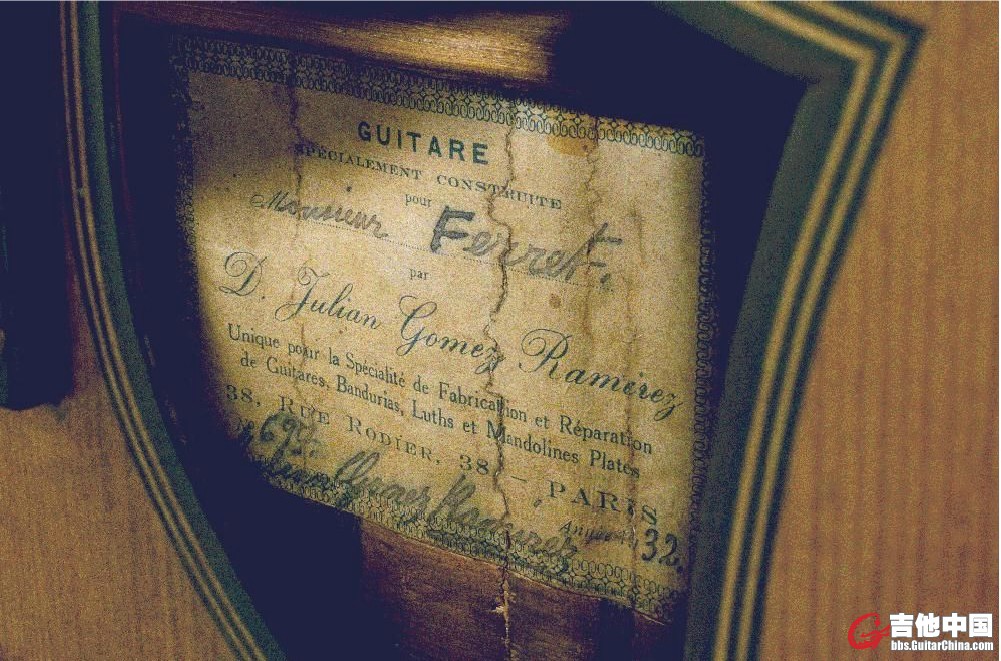 GUITARE
SPECIALEMENT CONSTRUITE
pour
Monsieur Ferret.
par
D. Julian Gomez Ramirez
Unique pour la Spécialité de Fabrication et Réparation
de Guitares, Bandurias, Luths et Mandolines Plates
38, RUE RODIER, 38 — PARIS
Julian Gomez Ramirez
32.
吉他中国
bbs.GuitarChina.com